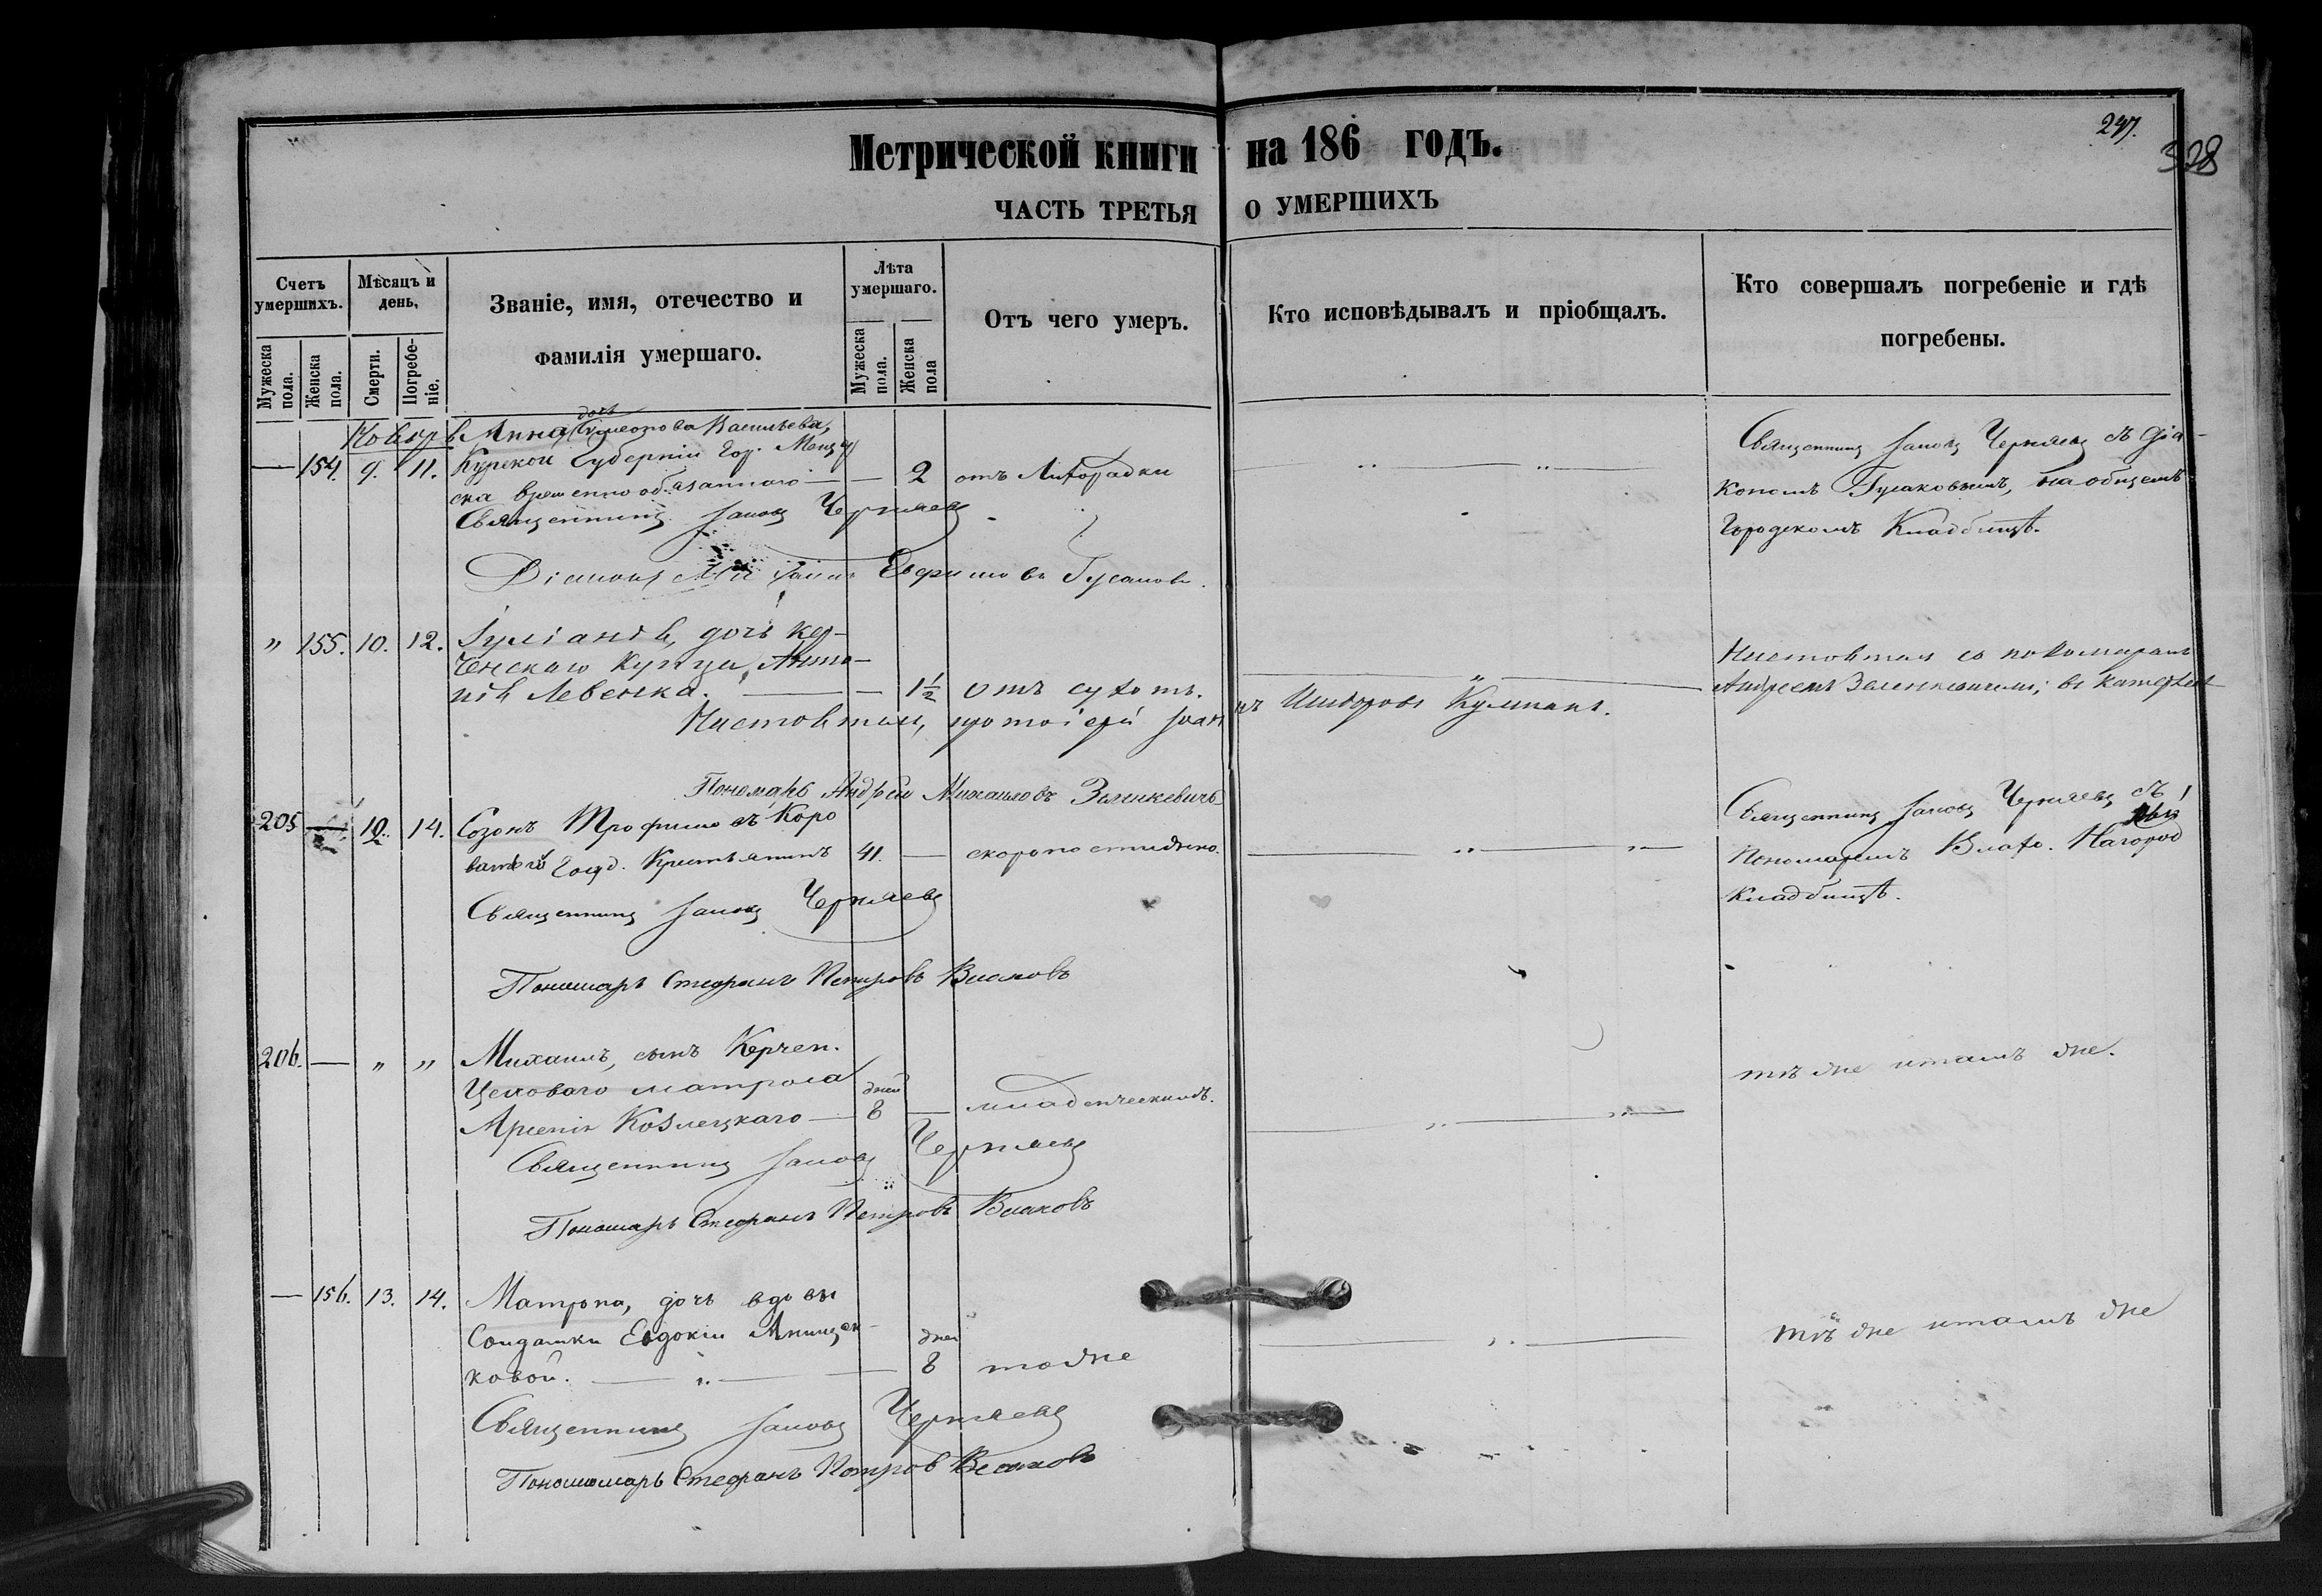 Метрической книги на 186 годъ.
247.
328
ЧАСТЬ ТРЕТЬЯ О УМЕРШИХЪ
Счетъ умершихъ.
Мѣсяцъ и день.
Званіе, имя, отечество и фамилія умершаго.
Лѣта умершаго.
Отъ чего умеръ.
Кто исповѣдывалъ и пріобщалъ.
Кто совершалъ погребеніе и гдѣ погребены.
Мужеска пола.
Женска пола.
Смерти.
Погребеніе.
Мужеска пола.
Женска пола
Ноябрь
дочь
Анна, Васильева,
— 154. 9. 11. Курской Губерніи Гор.
временно обязаннаго — — 2 отъ Лихорадки
Священникъ Іаковъ Черняевъ
Діаконъ Ефимовъ Гусаковъ.
Священникъ Іаковъ Черняевъ съ Діа-
кономъ Гусаковымъ, на общемъ
Городскомъ Кладбищѣ.
" 155. 10. 12. Іуліанія, дочь Кер-
ченскаго купца, Анто-
нія Левенка. — — 1½ отъ сухотъ.
Настоятель, протоіерей Іоаннъ Кумпанъ.
Пономарь Андрей Михаиловъ Зеленкевичъ
Настоятель со пономаремъ
Андреемъ Зеленкевичемъ; въ
205 — 12. 14. Созонъ Трофимовъ Коро
Госуд. Крестьянинъ 41. — скоропостижно.
Священникъ Іаковъ Черняевъ
Пономарь Стефанъ Петровъ Влаховъ
Священникъ Іаковъ Черняевъ съ
Пономаремъ Влахо. На город
Кладбищѣ.
206. — " " Михаилъ, сынъ Керчен.
Цеховаго матроса
дней
Арсенія Козлецкаго — 8 — младенческимъ.
Священникъ Іаковъ Черняевъ
Пономарь Стефанъ Петровъ Влаховъ
тѣ же и тамъ же.
— 156. 13. 14. Матрона, дочь вдовы
Солдатки Евдокіи
дней
ковой. — — 8 тоже
Священникъ Іаковъ Черняевъ
Пономарь Стефанъ Петровъ Влаховъ
тѣ же и тамъ же